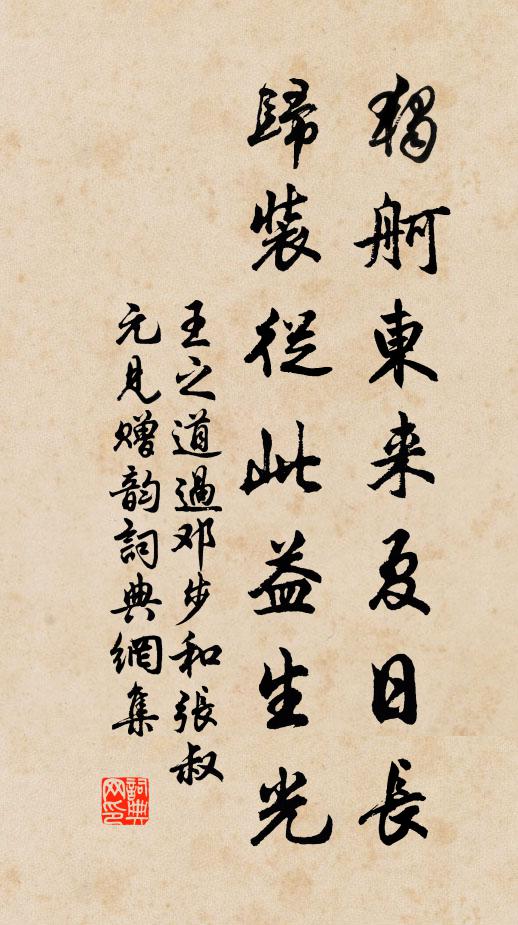 獨舸東来夏日長
歸裝從此益生光
王之道過邓步和張叔
元見贈韵詞典網集
詞典网印